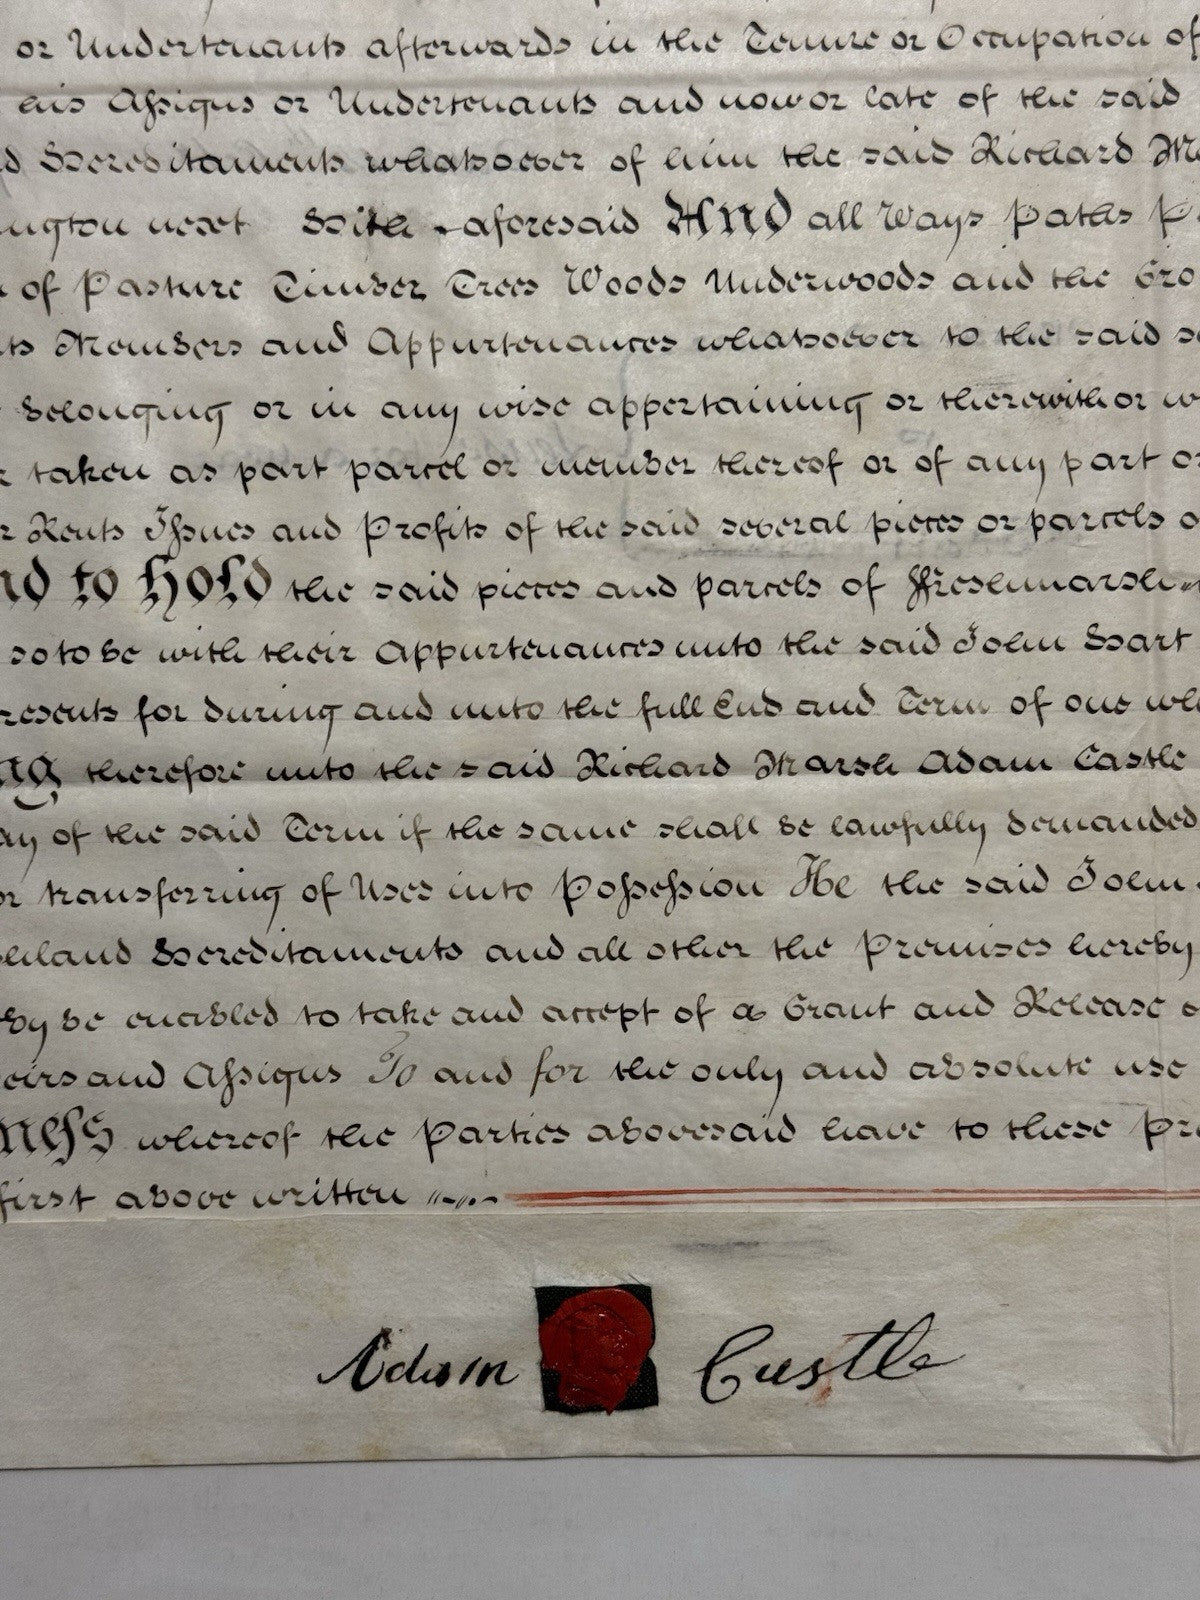 or Undertenants afterwards in the Tenure or Occupation of
his Assigns or Undertenants and now or late of the said
d Hereditaments whatsoever of him the said Richard M
ington next Hith aforesaid And all Ways Paths P
of Pasture Timber Trees Woods Underwoods and the Gro
ts Members and Appurtenances whatsoever to the said s
belonging or in any wise appertaining or therewith or w
r taken as part parcel or member thereof or of any part or
r Rents Issues and Profits of the said several pieces or parcels o
nd to Hold the said pieces and parcels of Freshmarsh
so to be with their Appurtenances unto the said John Hart
resents for during and unto the full End and Term of one wh
ng therefore unto the said Richard Marsh Adam Castle
ay of the said Term if the same shall be lawfully demanded
or transferring of Uses into Possession He the said John
shland Hereditaments and all other the Premises hereby
by be enabled to take and accept of a Grant and Release o
eirs and Assigns To and for the only and absolute use
ness whereof the Parties abovesaid have to these Pr
first above written
Adam Castle